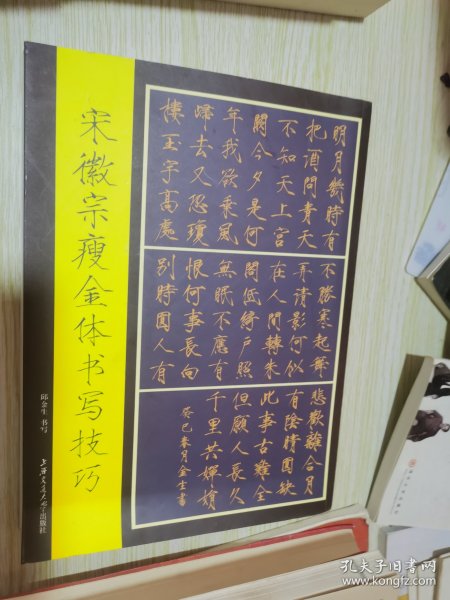 宋徽宗瘦金体书写技巧
邱金生 书写
上海交通大学出版社
明月幾時有
把酒問青天
不知天上宫
闕今夕是何
年我欲乘風
歸去又恐瓊
樓玉宇高處
不勝寒起舞
弄清影何似
在人間轉朱
閣低綺户照
無眠不應有
恨何事長向
别時圓人有
悲歡離合月
有陰晴圓缺
此事古難全
但願人長久
千里共嬋娟
癸巳春月金生書
孔夫子旧书网
www.kongfz.com